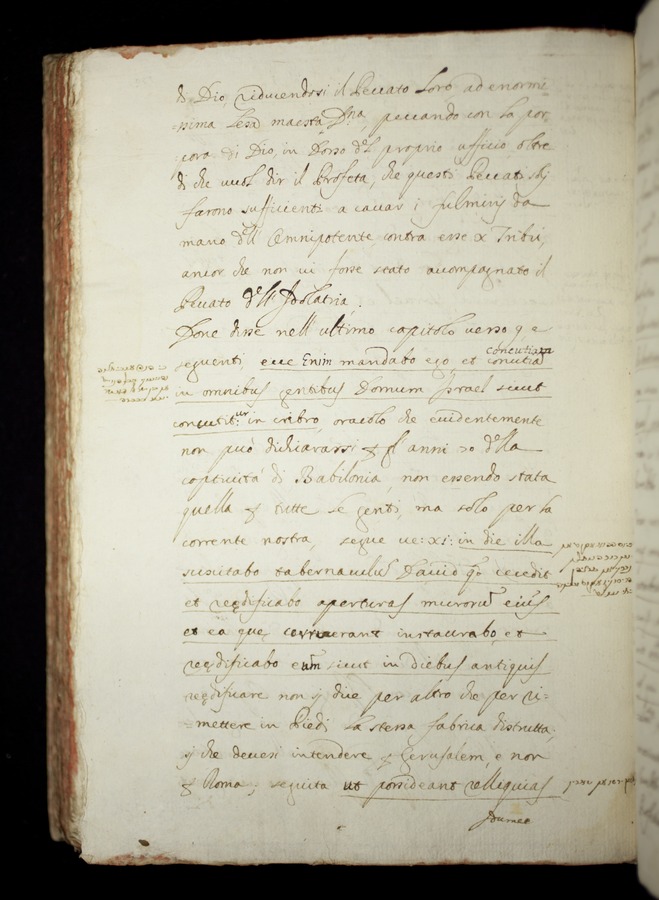 di Dio, riducendosi il Peccato loro, ad enormi
-ssima lesa maestà Dna, peccando con la por,
pora di Dio, in dorso del proprio ufficio oltre
di che vuol dir il Profeta, che questi Peccati soli
farono sufficienti a cavar i fulmini da
mano dell Omnipotente contra esse x Tribù,
ancor che non vi fosse stato accompagnato il
Peccato dell' Idolatria.
Done disse nell' ultimo capitolo verso 9 e
seguenti, ecce Enim mandabo ego et concutiam
in omnibus gentibus Domum Israel sicut
concutitur in cribro, oracolo che evidentemente
non può dichiararsi p gl anni 70 della
captività di Babilonia, non essendo stata
quella p tutte le genti, ma solo per la
corrente nostra, segue ve: xi: in die illa
suscitabo tabernaculu David qo cecidit
et reedificabo aperturas murorū eius
et ea que corruerant instaurabo, et
reedificabo eum sicut in diebus antiquis
reedificare non si dice per altro che per ri=
=mettere in Piedi la stessa fabrica distrutta,
si che devesi intendere p Gerusalem, e non
p Roma, seguita ut possideant relliquias
Idumee